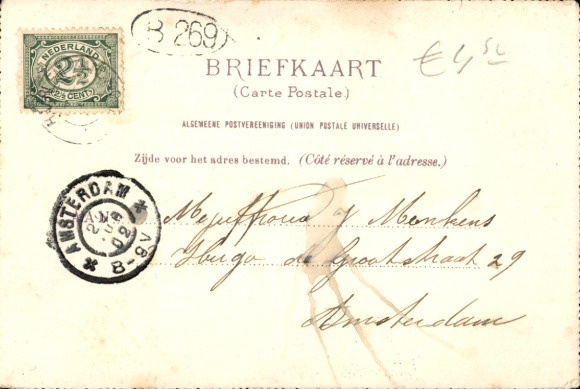 B 269
NEDERLAND
2½
2½ CENT
€ 4,50
BRIEFKAART
(Carte Postale.)
ALGEMEENE POSTVEREENIGING (UNION POSTALE UNIVERSELLE)
Zijde voor het adres bestemd. (Côté réservé à l'adresse.)
AMSTERDAM
02
8-9V
Mejuffrouw J Monkens
Hugo de Grootstraat 29
Amsterdam